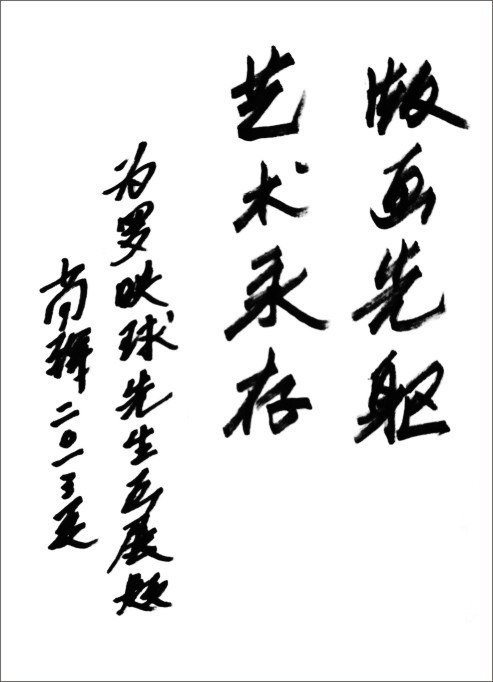 版画先躯
艺术永存
为罗映球先生展题
尚辉二〇一三夏